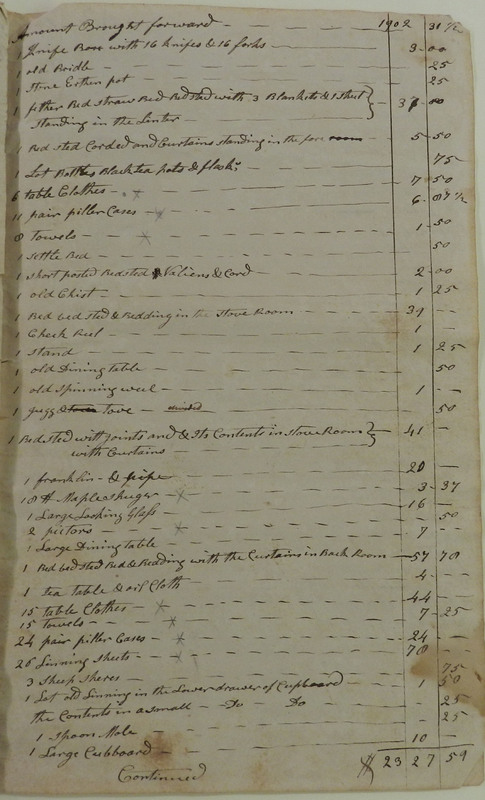 Amount Brought forward — 1902 31 1/2
1 Knife Box with 16 knifes & 16 forks — 3 - 00
1 old Bridle — 25
1 Stone Erthen pot — 25
1 fether Bed Straw Bed Bedsted with 3 Blankets & 1 Sheet } 37 - 00
Standing in the Senter —
1 Bedsted Corded and Curtains standing in the fore room — 5 - 50
1 Lot Bottles Black tea pots & flasks — 75
6 table Clothes — x 7 - 50
11 pair piller Cases — x 6 - 87 1/2
8 Towels — x 1 - 50
1 Settle Bed — 50
1 Short posted Bedsted Valiens & Cord — 2 - 00
1 old Chist — 1 25
1 Bed bedsted & Bedding in the Stove Room — 31 —
1 Check Reel — 1 —
1 Stand — 1 25
1 old Dining table — 50
1 old Spinning weel — 1 —
1 jugg & tove — 50
1 Bedsted with joints and & Its Contents in Stove Room } 41 —
with Curtains
1 franklin & pipe — 20 —
18 # Maple shuger — x 3 - 37
1 Large Looking Glass — 16 —
2 pictors — x 50
1 Large Dining table — 7 —
1 Bed bedsted Bed & Beading with the Curtains in Back Room — 57 70
1 tea table & oil Cloth 4 —
15 table Clothes — x 44 —
15 towels — x 7 - 25
24 pair piller Cases — x 24 —
26 Linning Sheets — x 78 —
3 Sheep Sheres — 75
1 Lot old Linning in the Lower drawer of Cupboard 1 50
the Contents in a small — Do — Do — 25
1 Spoon Mole — 25
1 Large Cubboard — 10 —
Continued $ 2327 59